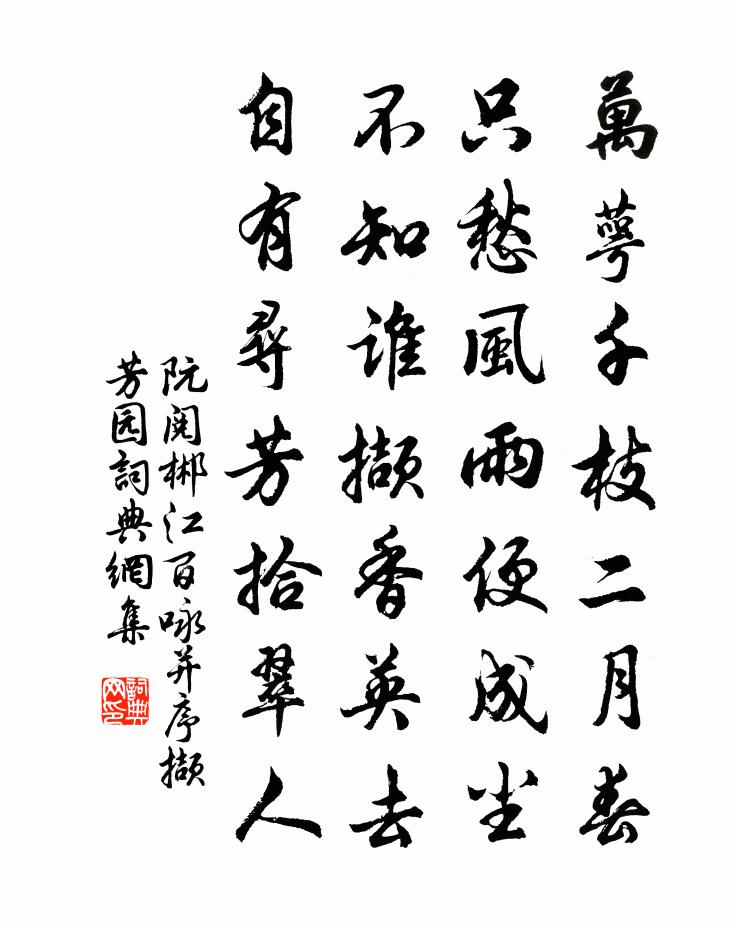 萬萼千枝二月春
只愁風雨便成尘
不知谁擷香英去
自有尋芳拾翠人
阮阅郴江百咏并序擷
芳园詞典網集
詞典
网印